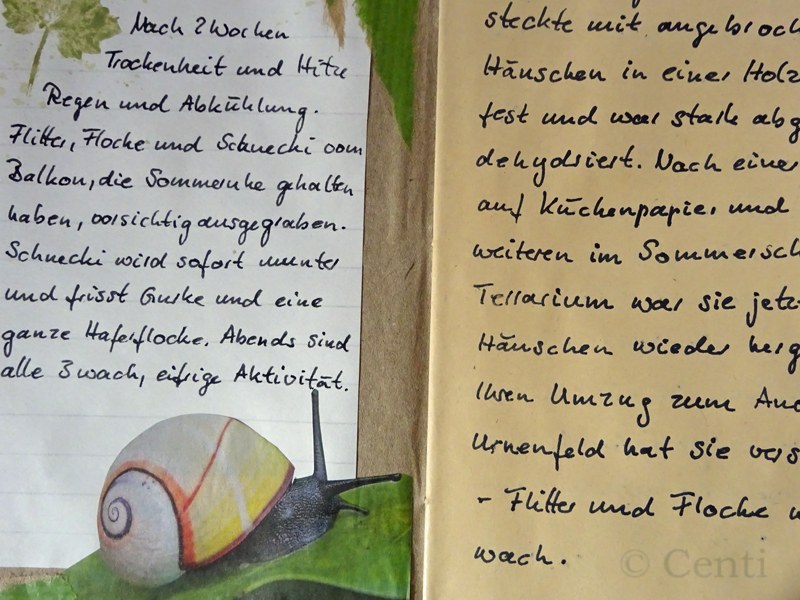 Nach 2 Wochen
Trockenheit und Hitze
Regen und Abkühlung.
Flitter, Flocke und Schnecki vom
Balkon, die Sommerruhe gehalten
haben, vorsichtig ausgegraben.
Schnecki wird sofort munter
und frisst Gurke und eine
ganze Haferflocke. Abends sind
alle 3 wach, eifrige Aktivität.
steckte mit angebroch
Häuschen in einer Holz
fest und war stark abg
dehydriert. Nach einer
auf Küchenpapier und
weiteren im Sommersch
Terrarium war sie jetz
Häuschen wieder herg
Ihren Umzug zum And
Urnenfeld hat sie vers
- Flitter und Flocke w
wach.
© Centi